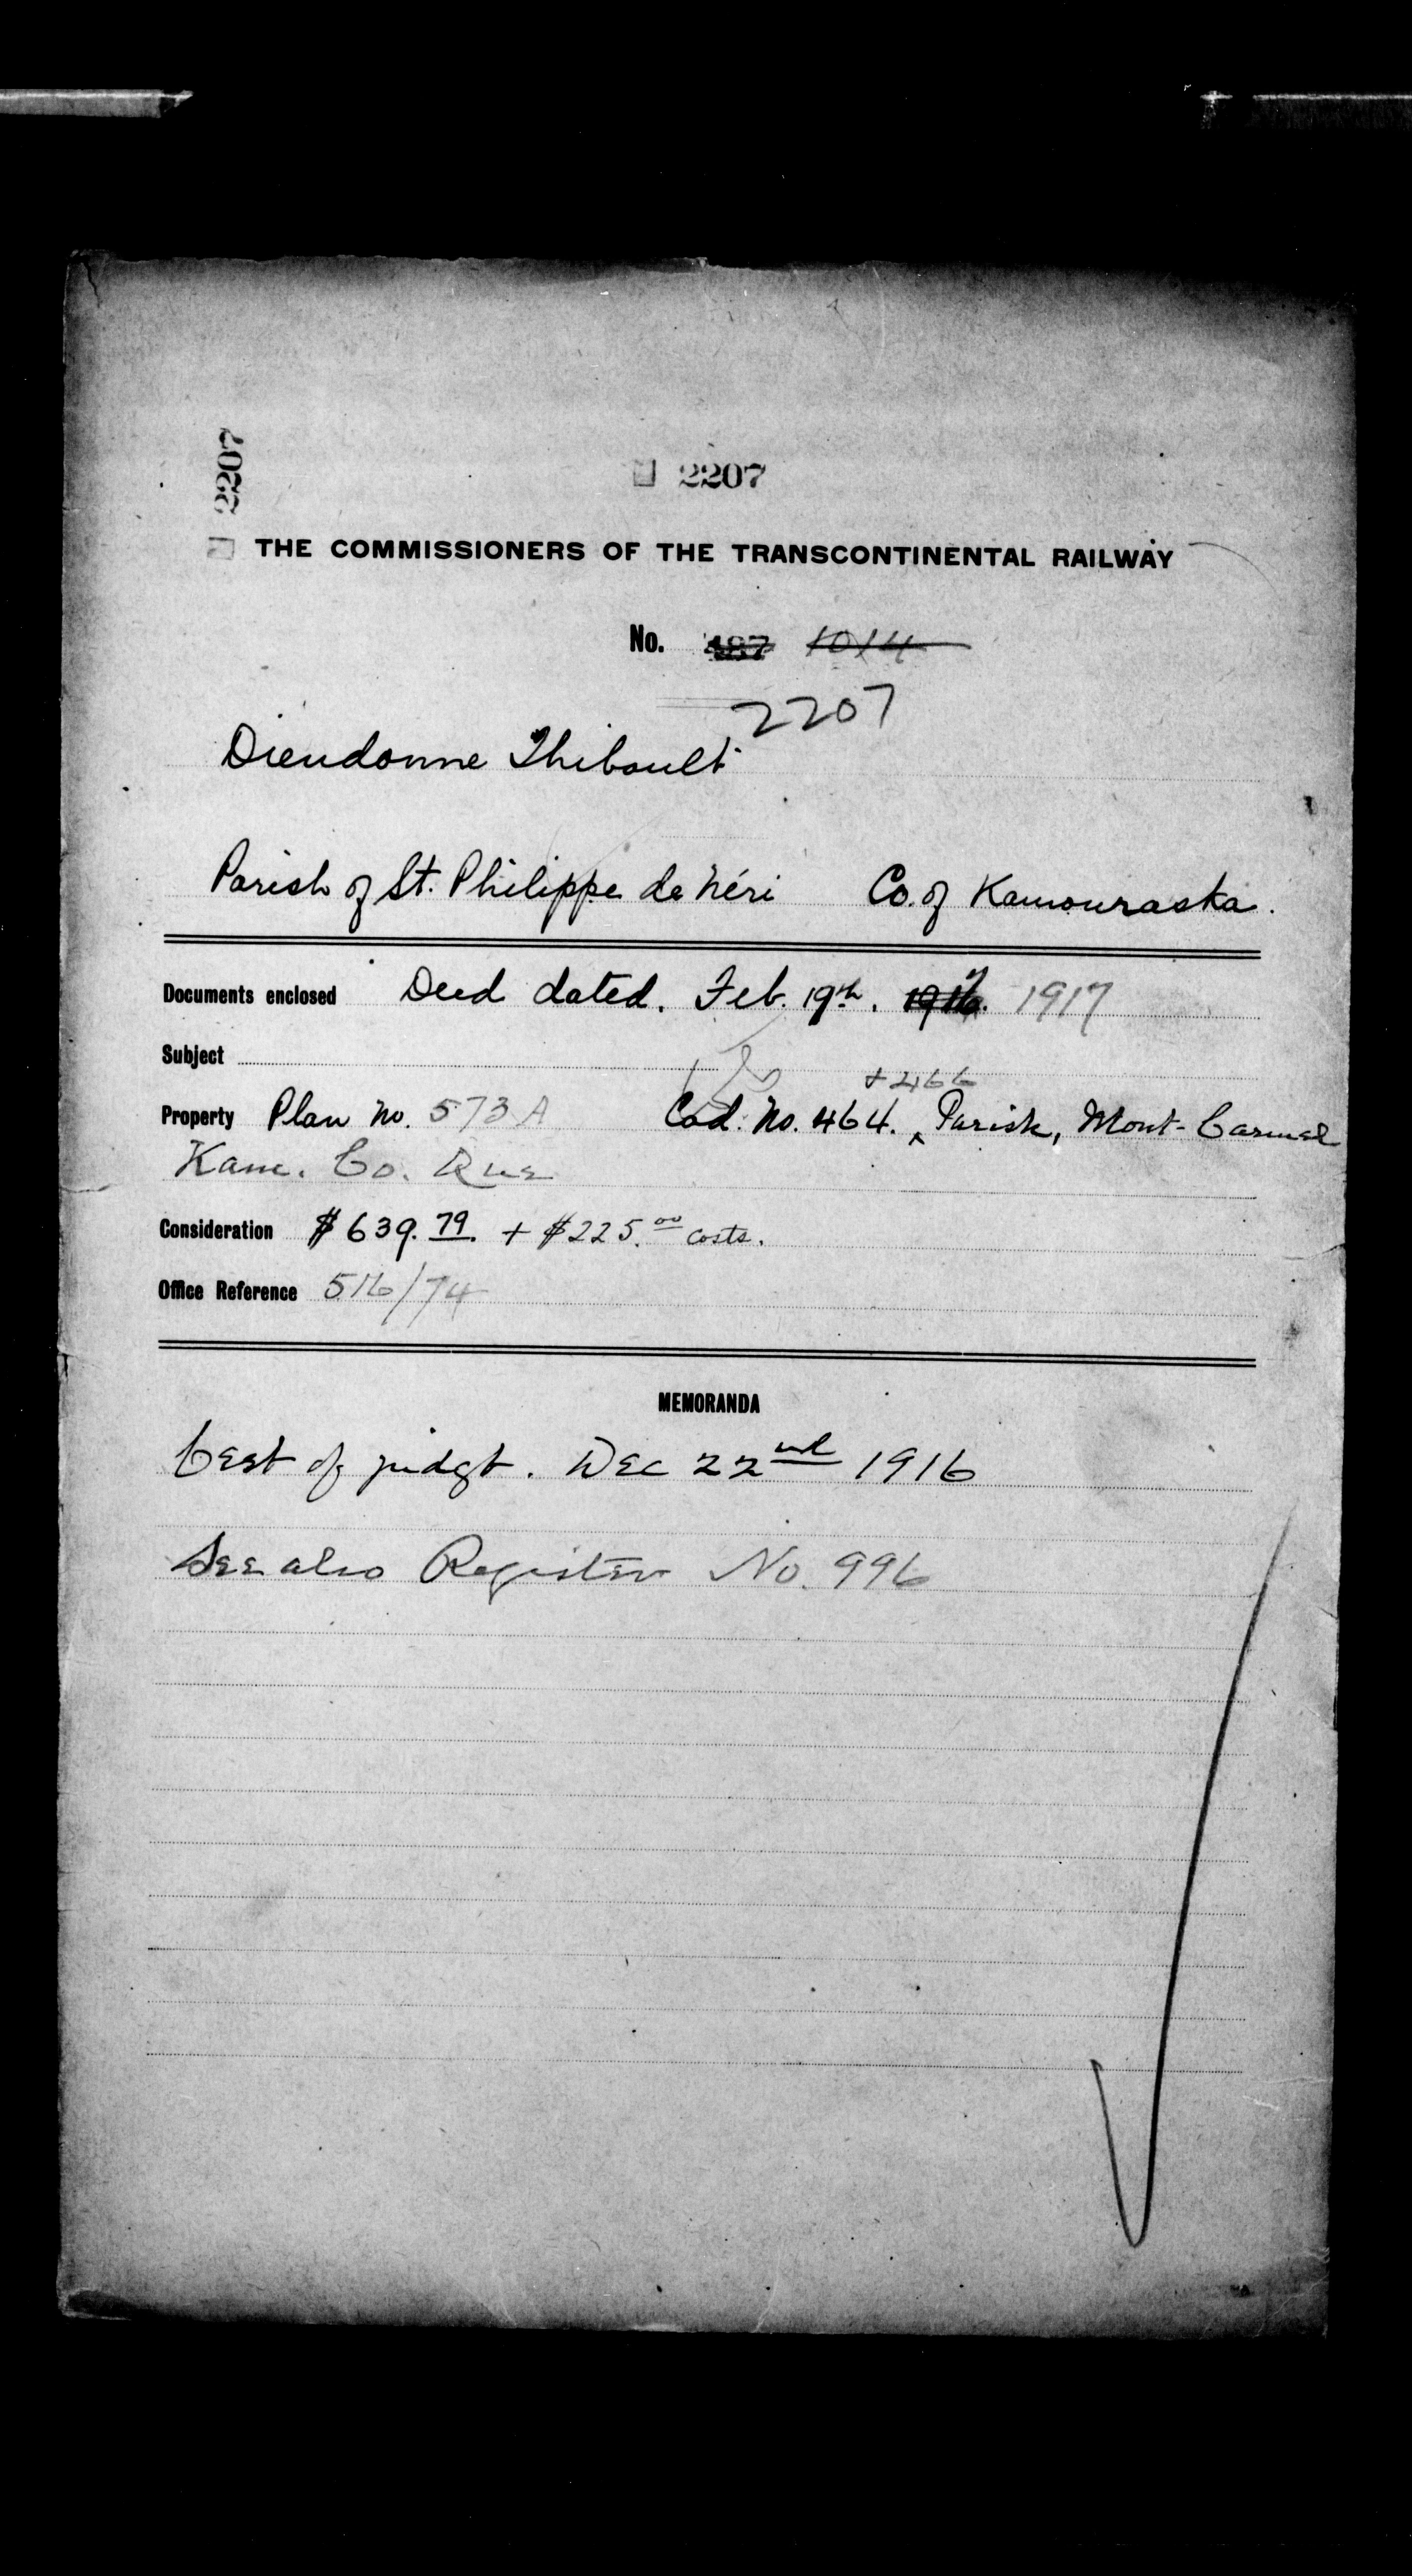 2207
2207
THE COMMISSIONERS OF THE TRANSCONTINENTAL RAILWAY
No. 487 1014
2207
Dieudonne Thibault
Parish of St. Philippe de Néri Co. of Kamouraska.
Documents enclosed Deed dated. Feb. 19th. 1916. 1917
Subject
+ 466
Property Plan No. 573A Cad. No. 464. ^ Parish, Mont-Carmel
Kam. Co. Que
Consideration $639.79. + $225.00 costs.
Office Reference 516/74
MEMORANDA
Cert of judgt. Dec 22nd 1916
See also Register No. 996